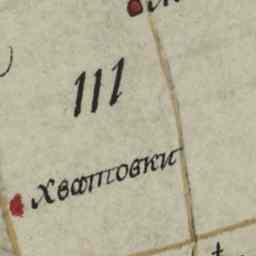 111
хватовки